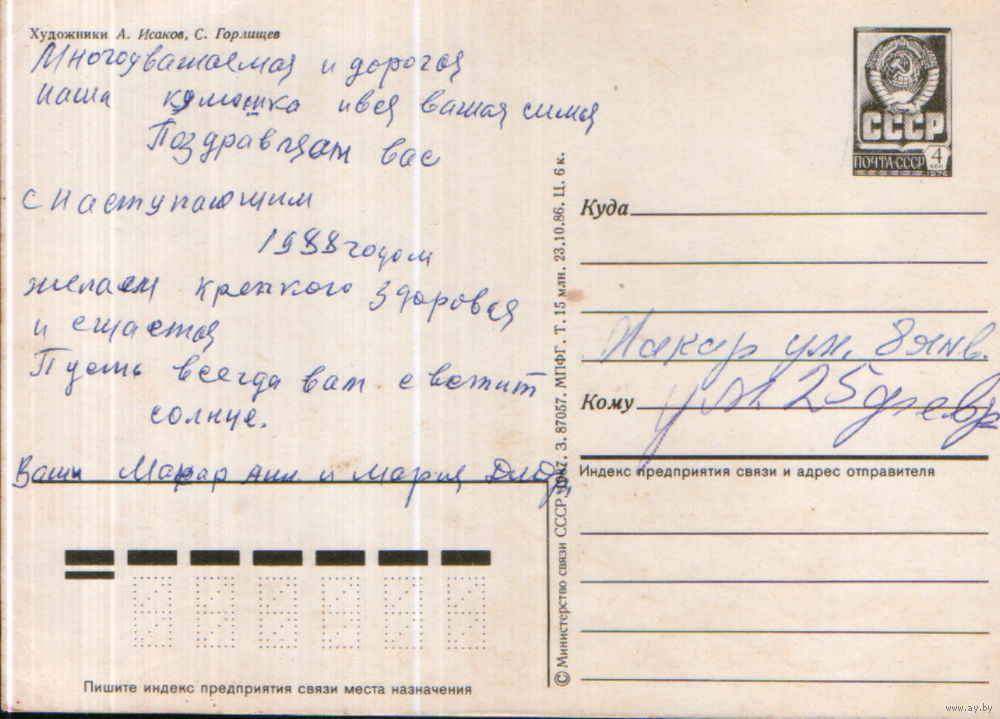 Художники А. Исаков, С. Горлищев
Многоуважаемая и дорогая
наша кумошка ився вашая симя
Поздравляем вас
с наступающим
1988 годом
желаем крепкого здоровья
и счастья
Пусть всегда вам светит
солнце.
Ваши Макар и Мария
СССР
ПОЧТА СССР 4 КОП
1976
Куда
ул. 8 янв.
Кому
ул. 25 февр
Индекс предприятия связи и адрес отправителя
© Министерство связи СССР. 1987. З. 87057. МПФГ. Т. 15 млн. 23.10.86. Ц. 6 к.
Пишите индекс предприятия связи места назначения
www.ay.by